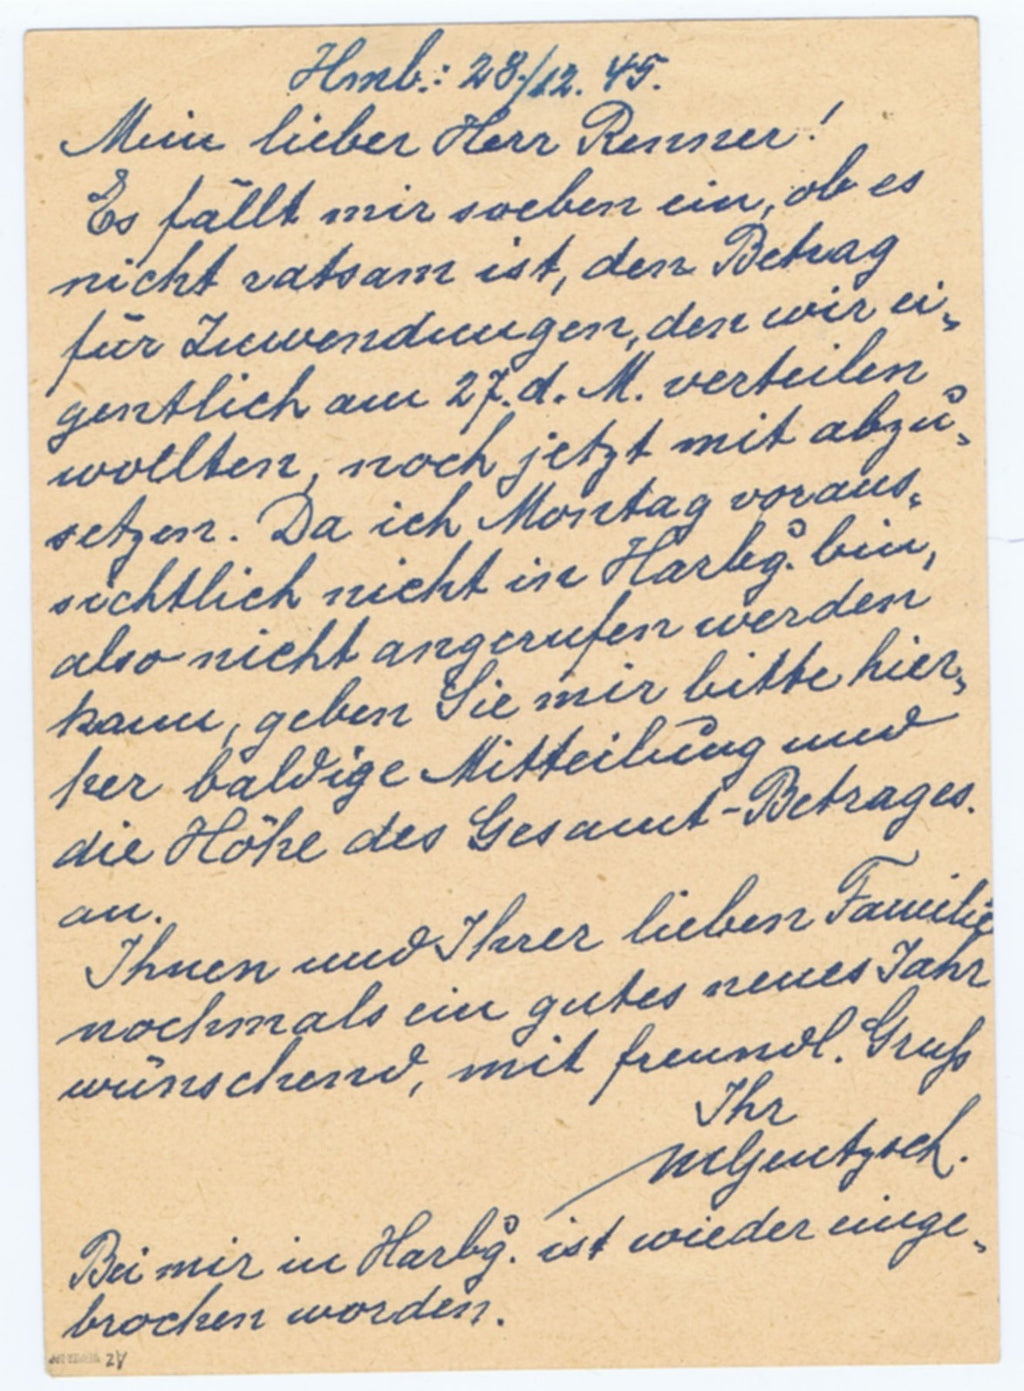 Hmb.: 28./12. 45.
Mein lieber Herr Renner!
Es fällt mir soeben ein, ob es
nicht ratsam ist, den Betrag
für Zuwendungen, den wir ei-
gentlich am 27. d. M. verteilen
wollten, noch jetzt mit abzu-
setzen. Da ich Montag voraus-
sichtlich nicht in Harbg. bin,
also nicht angerufen werden
kann, geben Sie mir bitte hier-
her baldige Mitteilung und
die Höhe des Gesamt-Betrages.
an.
Ihnen und Ihrer lieben Familie
nochmals ein gutes neues Jahr
wünschend, mit freundl. Gruß
Ihr
Bei mir in Harbg. ist wieder einge-
brochen worden.